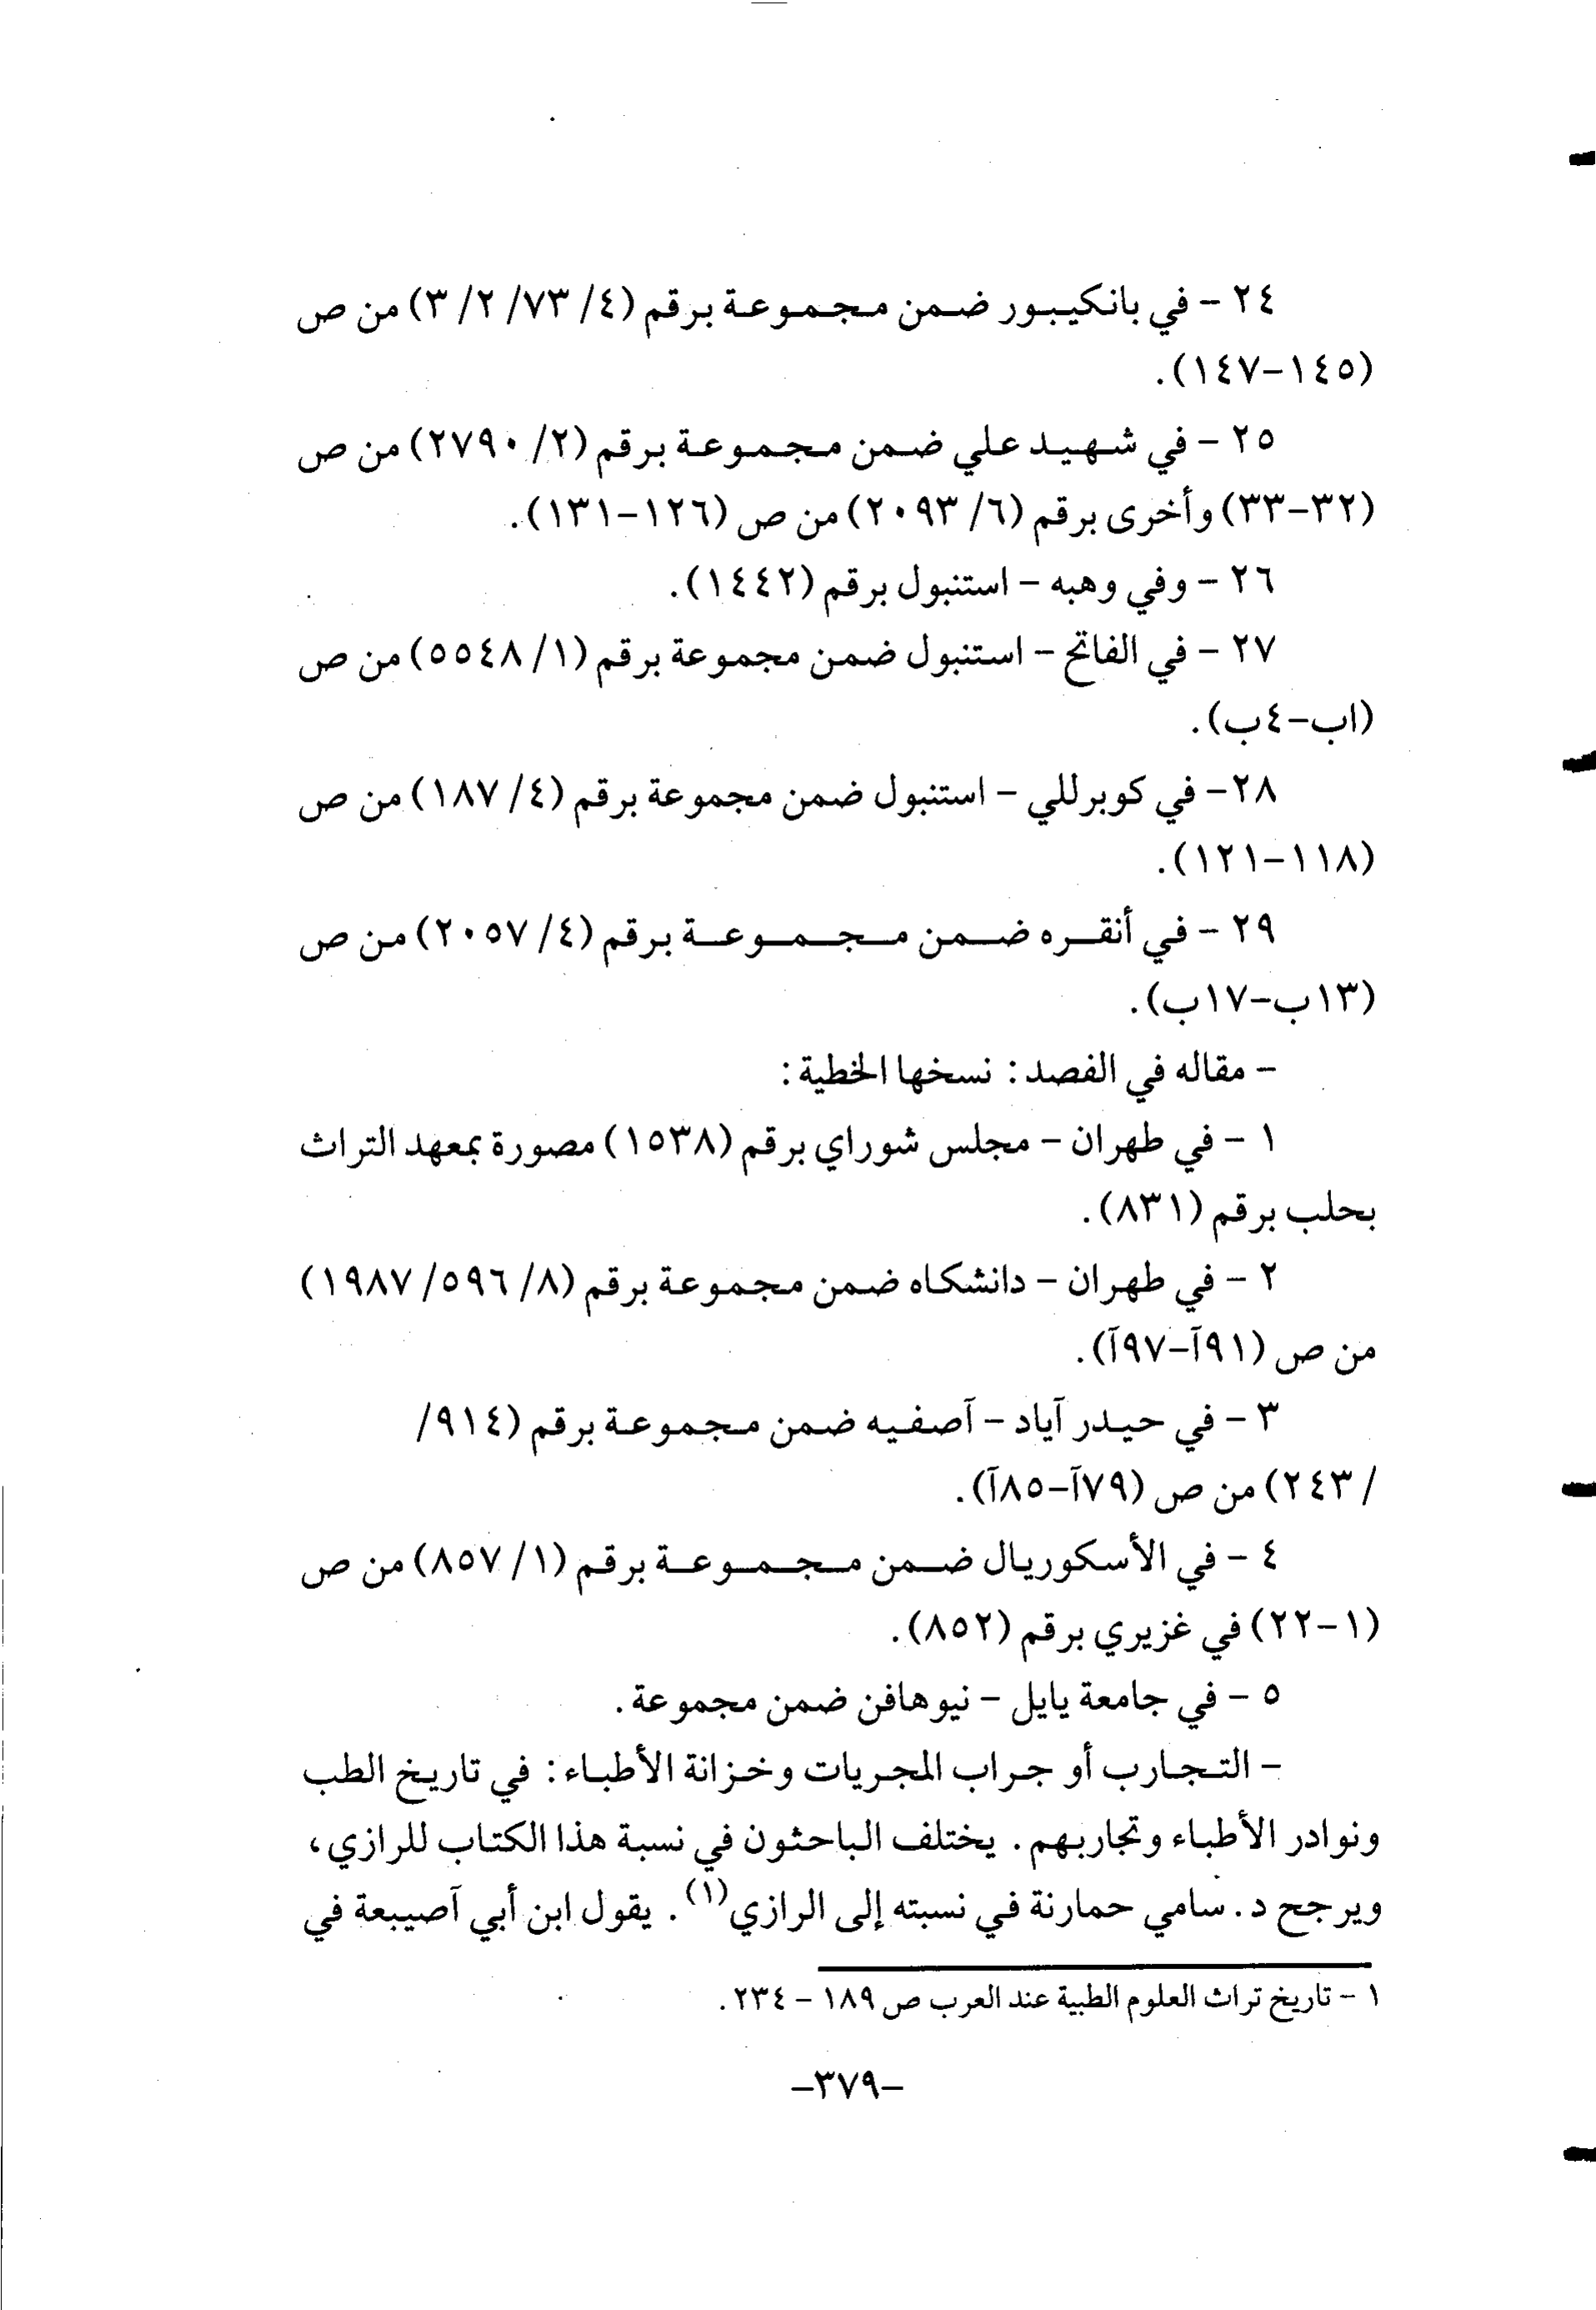 ٢٤ - في بانكيبور ضمن مجموعة برقم (٤/ ٧٣/ ٢/ ٣) من ص
(١٤٥-١٤٧).
٢٥ - في شهيد علي ضمن مجموعة برقم (٢/ ٢٧٩٠) من ص
(٣٢-٣٣) وأخرى برقم (٦/ ٢٠٩٣) من ص (١٢٦-١٣١).
٢٦ - وفي وهبه - استنبول برقم (١٤٤٢).
٢٧ - في الفاتح - استنبول ضمن مجموعة برقم (١/ ٥٥٤٨) من ص
(اب-٤ب).
٢٨- في كوبرللي - استنبول ضمن مجموعة برقم (٤/ ١٨٧) من ص
(١١٨-١٢١).
٢٩ - في أنقره ضمن مجموعة برقم (٤/ ٢٠٥٧) من ص
(١٣ب-١٧ب).
- مقاله في الفصد: نسخها الخطية:
١ - في طهران - مجلس شوراي برقم (١٥٣٨) مصورة بمعهد التراث
بحلب برقم (٨٣١).
٢ - في طهران - دانشكاه ضمن مجموعة برقم (٨/ ٥٩٦/ ١٩٨٧)
من ص (٩١آ-٩٧آ).
٣ - في حيدر آياد - آصفيه ضمن مجموعة برقم (٩١٤/
/ ٢٤٣) من ص (٧٩آ-٨٥آ).
٤ - في الأسكوريال ضمن مجموعة برقم (١/ ٨٥٧) من ص
(١-٢٢) في غزيري برقم (٨٥٢).
٥ - في جامعة يايل - نيوهافن ضمن مجموعة.
- التجارب أو جراب المجريات وخزانة الأطباء: في تاريخ الطب
ونوادر الأطباء وتجاربهم. يختلف الباحثون في نسبة هذا الكتاب للرازي،
ويرجح د. سامي حمارنة في نسبته إلى الرازي(١). يقول ابن أبي آصيبعة في
١ - تاريخ تراث العلوم الطبية عند العرب ص ١٨٩ - ٢٣٤.
-٣٧٩-